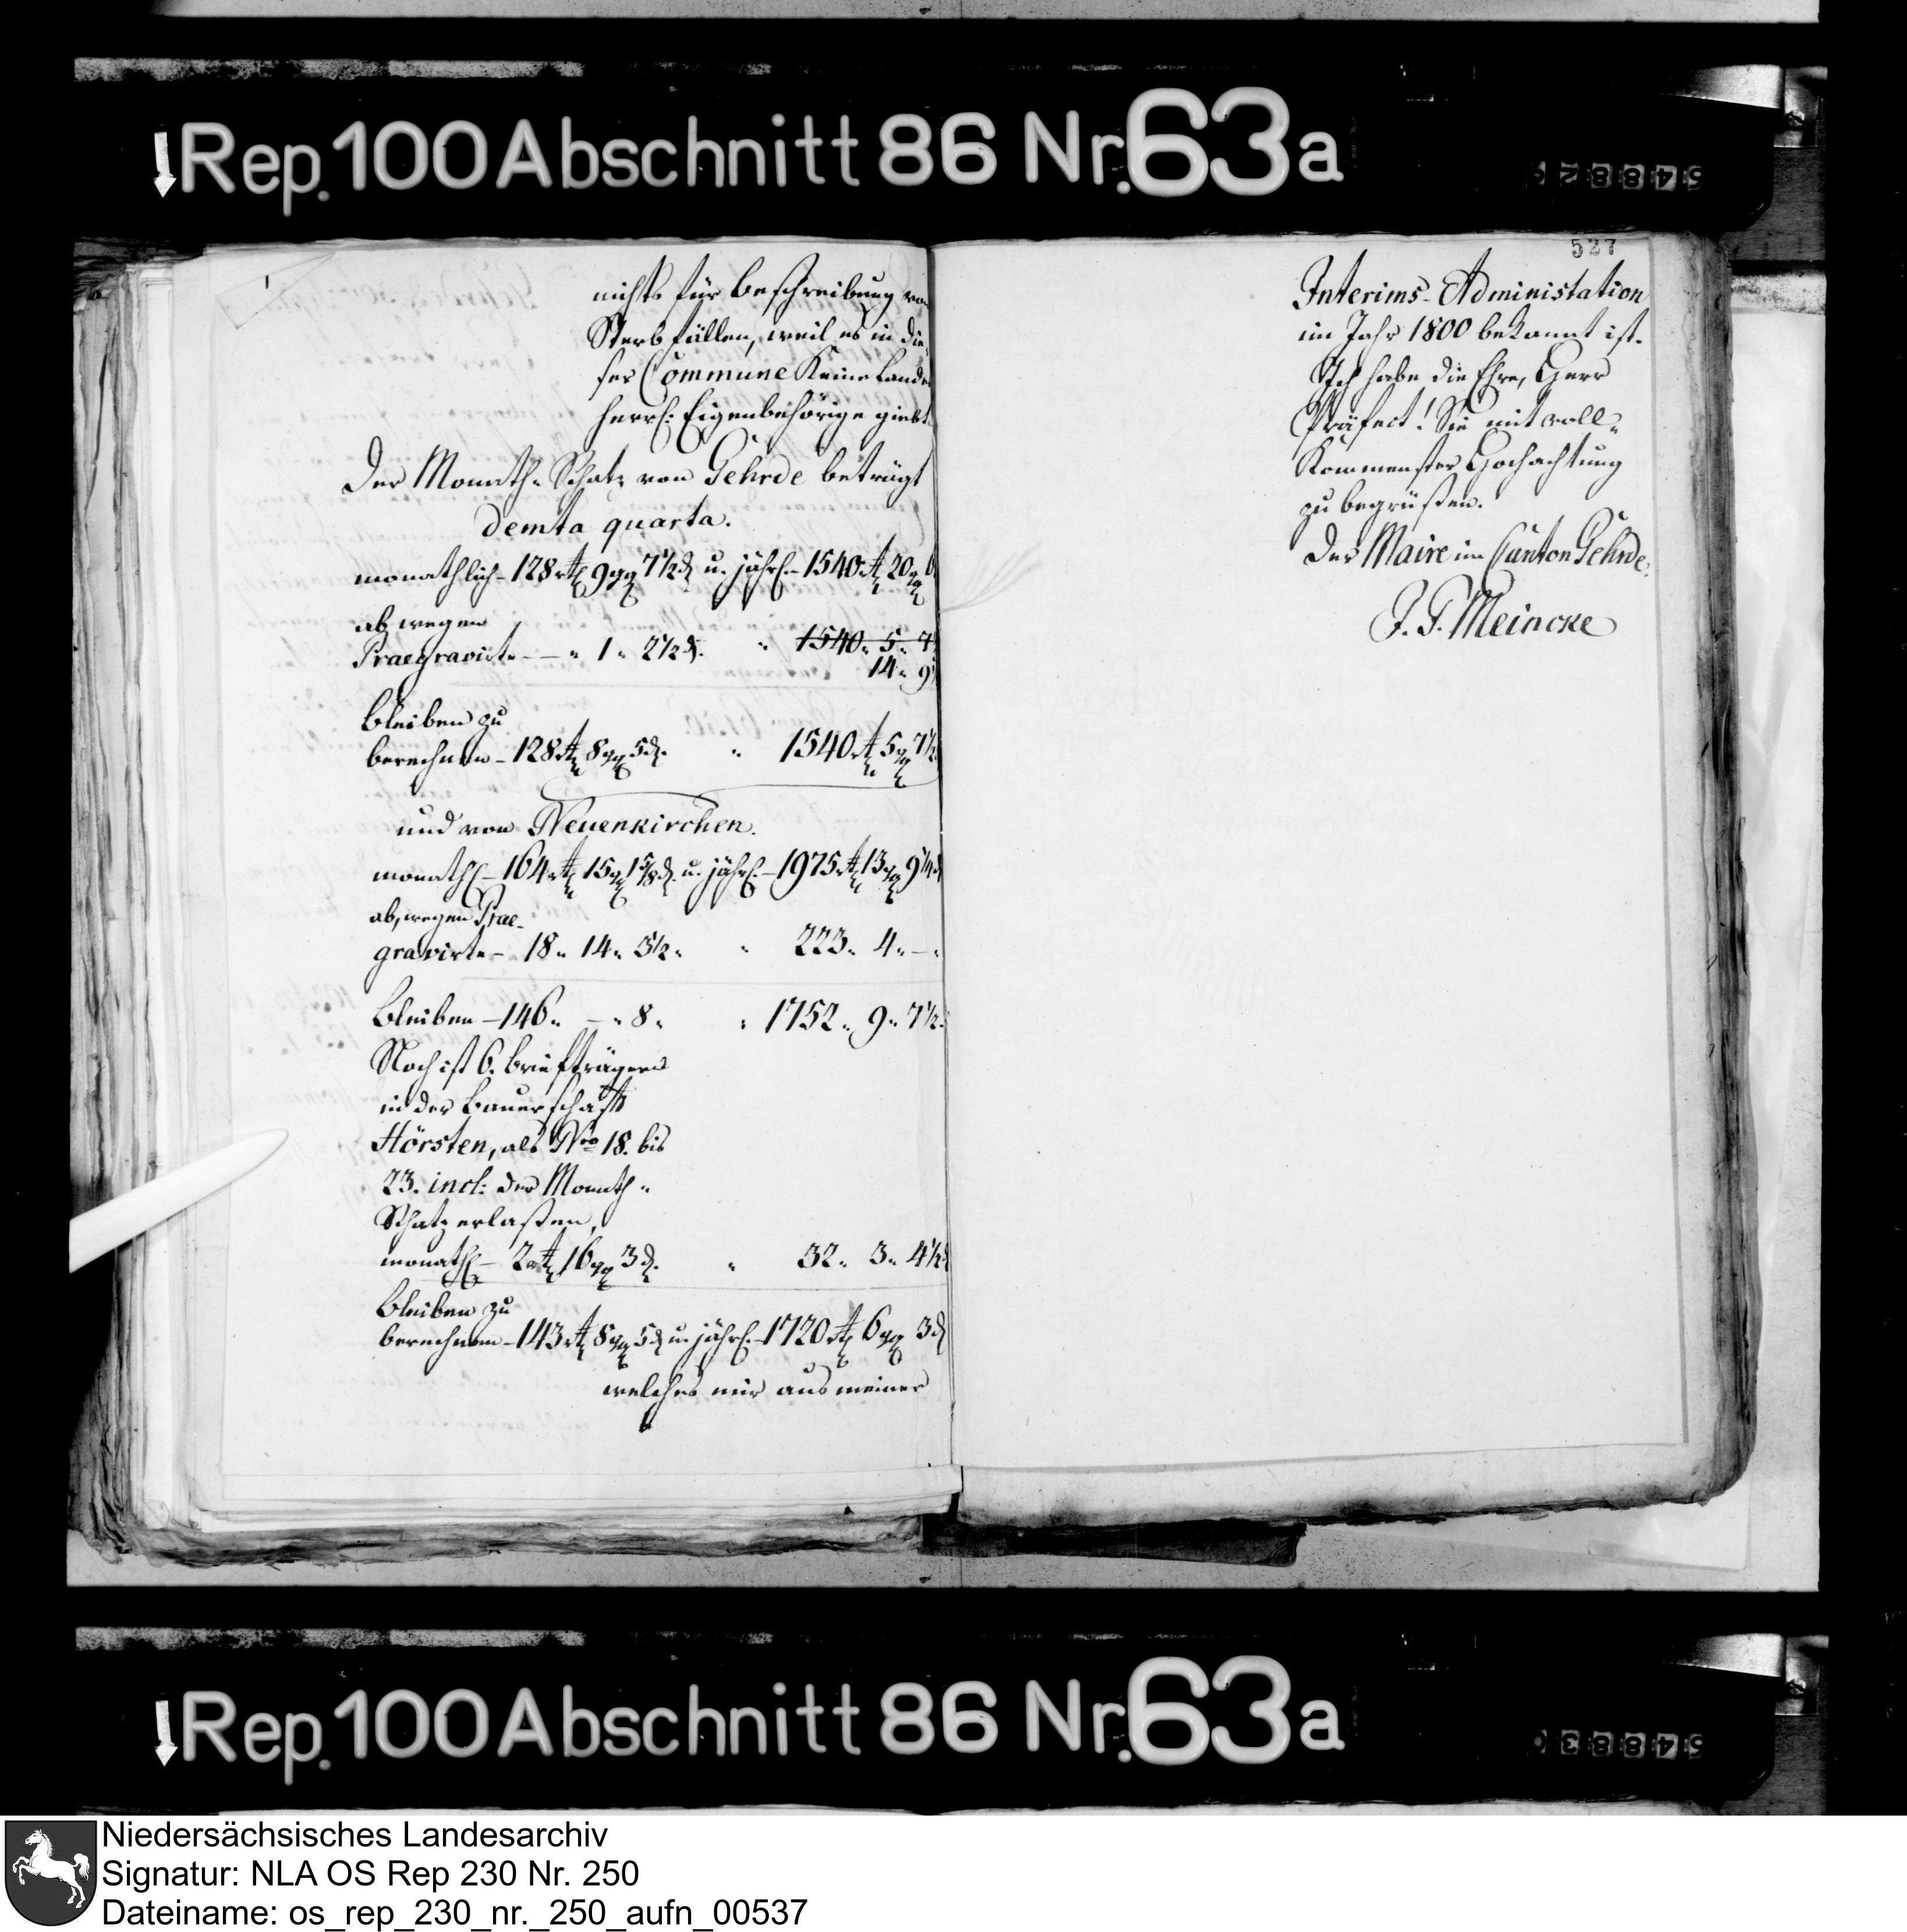 Rep. 100 Abschnitt 86 Nr. 63a
nichts für Beschreibung von
Sterbfällen, weil es in die¬
ser Commune keine Landes
herrl: Eigenbehörige giebt.
Der Monath- Schatz von Gehrde beträgt
demta quarta.
monathlich - 128 rt 9 gg 7 1/2 d u. jährl. - 1540 rt 20 gg 6
ab wegen
Praegravirte - - " 1 " 2 1/2 d. " 1540. 5. 7
14. 9
Bleiben zu
berechnen - 128 rt 8 gg 5 d. " 1540 rt 5 gg 7 1/2
und von Neuenkirchen.
monathl - 164 rt 15 gg 1 5/8 d. u. jährl. - 1975 rt 13 gg 9 1/4 d
ab, wegen Prae-
gravirte - 18 " 14 " 3 1/2 " " 223 " 4 " - "
Bleiben - 146 " - " 8 " " 1752 " 9 " 7 1/2
Noch ist 6. Briefträgern
in der Bauerschaft
Hörsten, als Nro 18. bis
23. incl: der Monath-
Schatz erlaßen,
monathl - 2 rt 16 gg 3 d. " 32 " 3 " 4 1/2
Bleiben zu
berechnen - 143 rt 8 gg 5 d u. jährl. - 1720 rt 6 gg 3 d
welches mir aus meiner
527
Interims-Administation
im Jahr 1800 bekannt ist.
Ich habe die Ehre, Herr
Präfect! Sie mit voll¬
kommenster Hochachtung
zu begrüßen.
Der Maire im Canton Gehrde.
J. G. Meincke
Rep. 100 Abschnitt 86 Nr. 63a
Niedersächsisches Landesarchiv
Signatur: NLA OS Rep 230 Nr. 250
Dateiname: os_rep_230_nr._250_aufn_00537